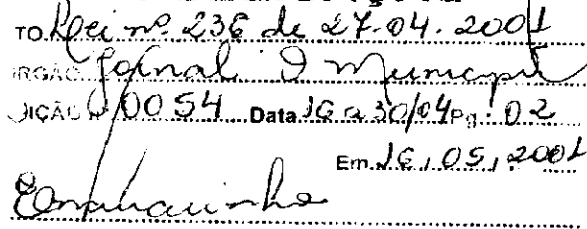 TO Lei nº 236 de 27.04.2001
ORGÃO Jornal O Município
DIÇÃO 0054 Data 16 a 30/04 Pg. 02
Em 16, 05, 2001